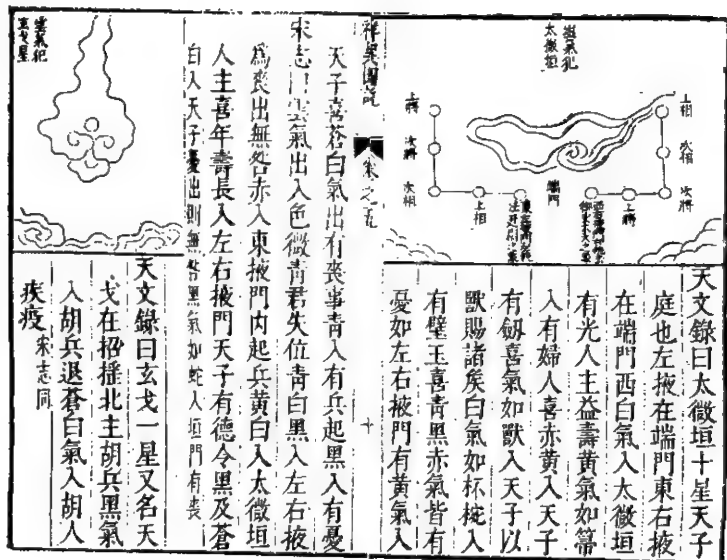 雲氣犯
太微垣
上將
次將
次相
上相
端門
上將
次將
次相
上相
天文錄曰太微垣十星天子
庭也左掖在端門東右掖
在端門西白氣入太微垣
有光人主益壽黃氣如箒
入有婦人喜赤黃入天子
有劒喜氣如獸入天子以
獸賜諸侯白氣如杯椀入
有璧玉喜青黑赤氣皆有
憂如左右掖門有黃氣入
祥異圖說
卷之五
十
天子喜蒼白氣出有喪事青入有兵起黑入有憂
宋志曰雲氣出入色微青君失位青白黑入左右掖
爲喪出無咎赤入東掖門內起兵黃白入太微垣
人主喜年壽長入左右掖門天子有德令黑及蒼
白入天子憂出則無咎黑氣如蛇入垣門有喪
雲氣犯
玄戈星
天文錄曰玄戈一星又名天
戈在招揺北主胡兵黑氣
入胡兵退蒼白氣入胡人
疾疫宋志同